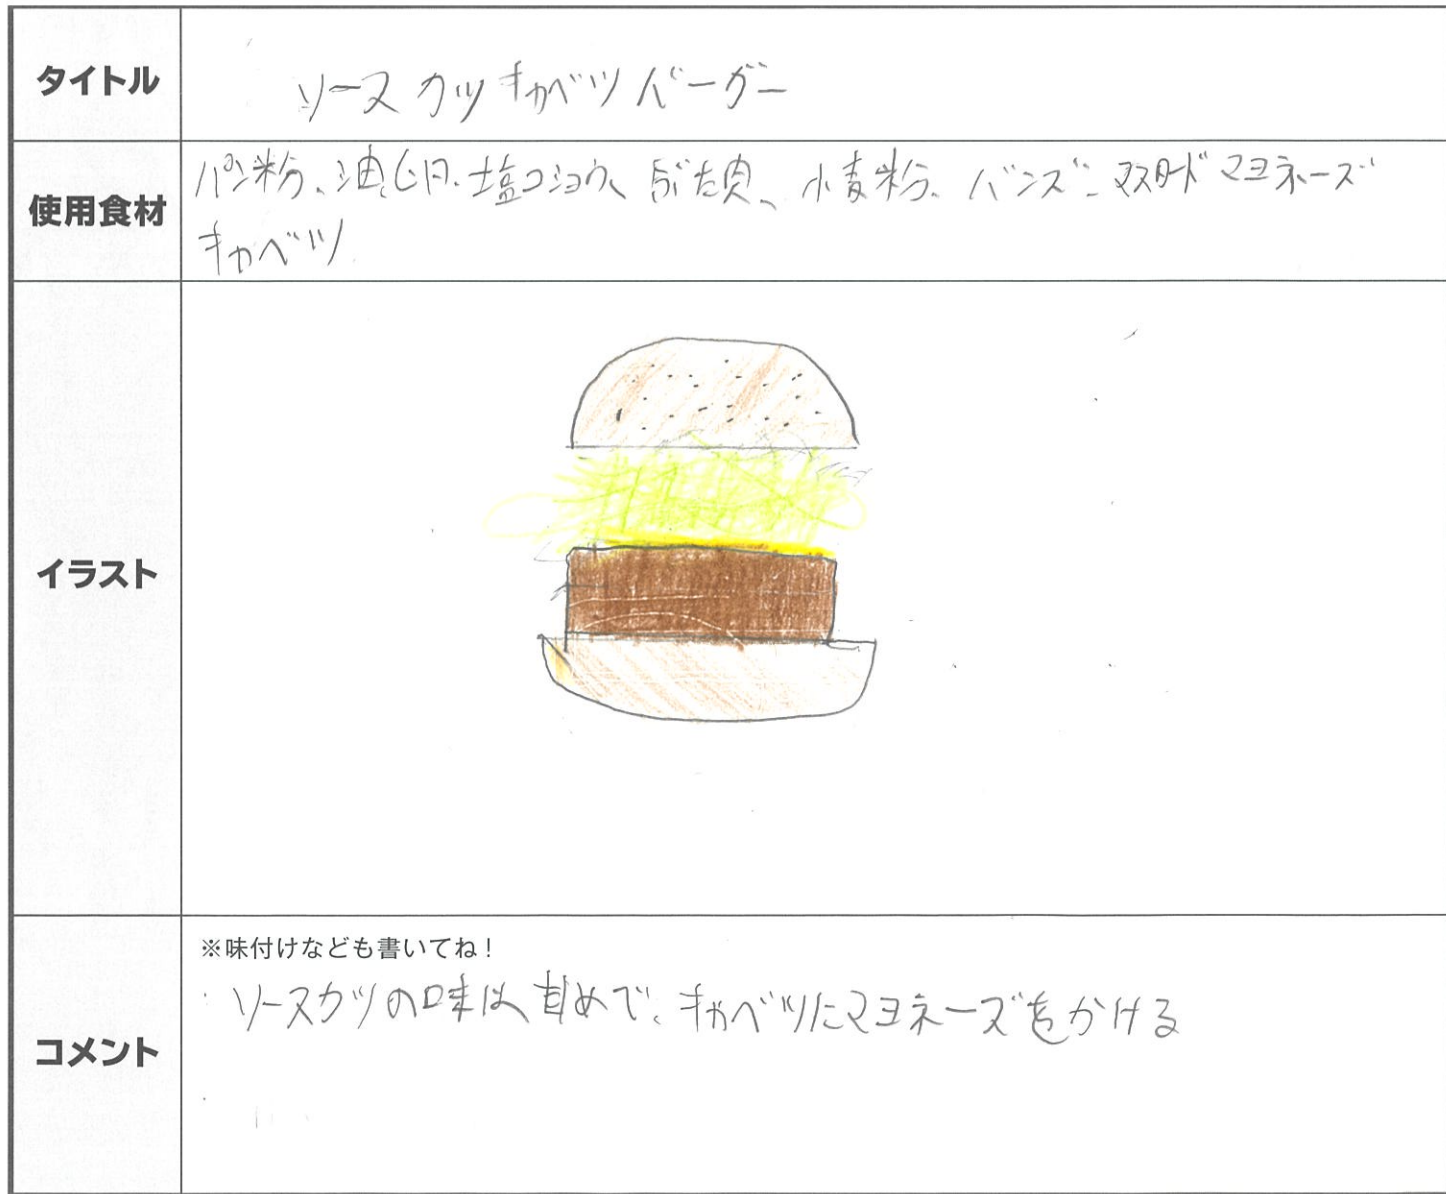 タイトル
ソースカツキャベツバーガー
使用食材
パン粉、油、卵、塩コショウ、ぶた肉、小麦粉、バンズ、マスタード マヨネーズ
キャベツ
イラスト
コメント
※味付けなども書いてね！
ソースカツの味は甘めで、キャベツにマヨネーズをかける